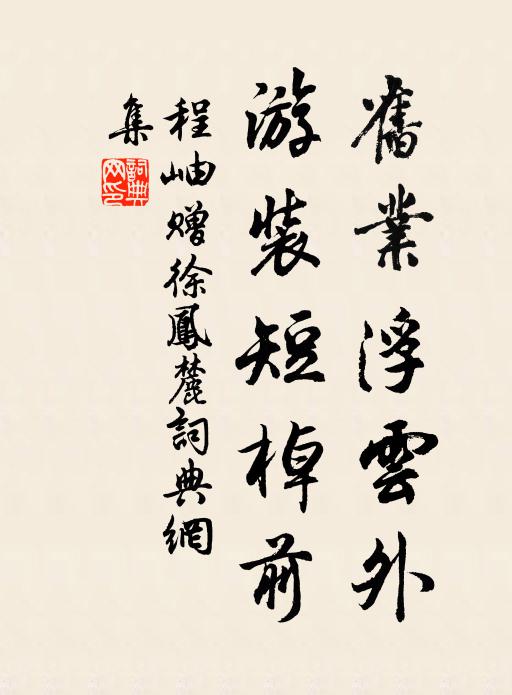 舊業浮雲外
游裝短棹前
程岫贈徐鳳麓詞典網
集
詞典
网印